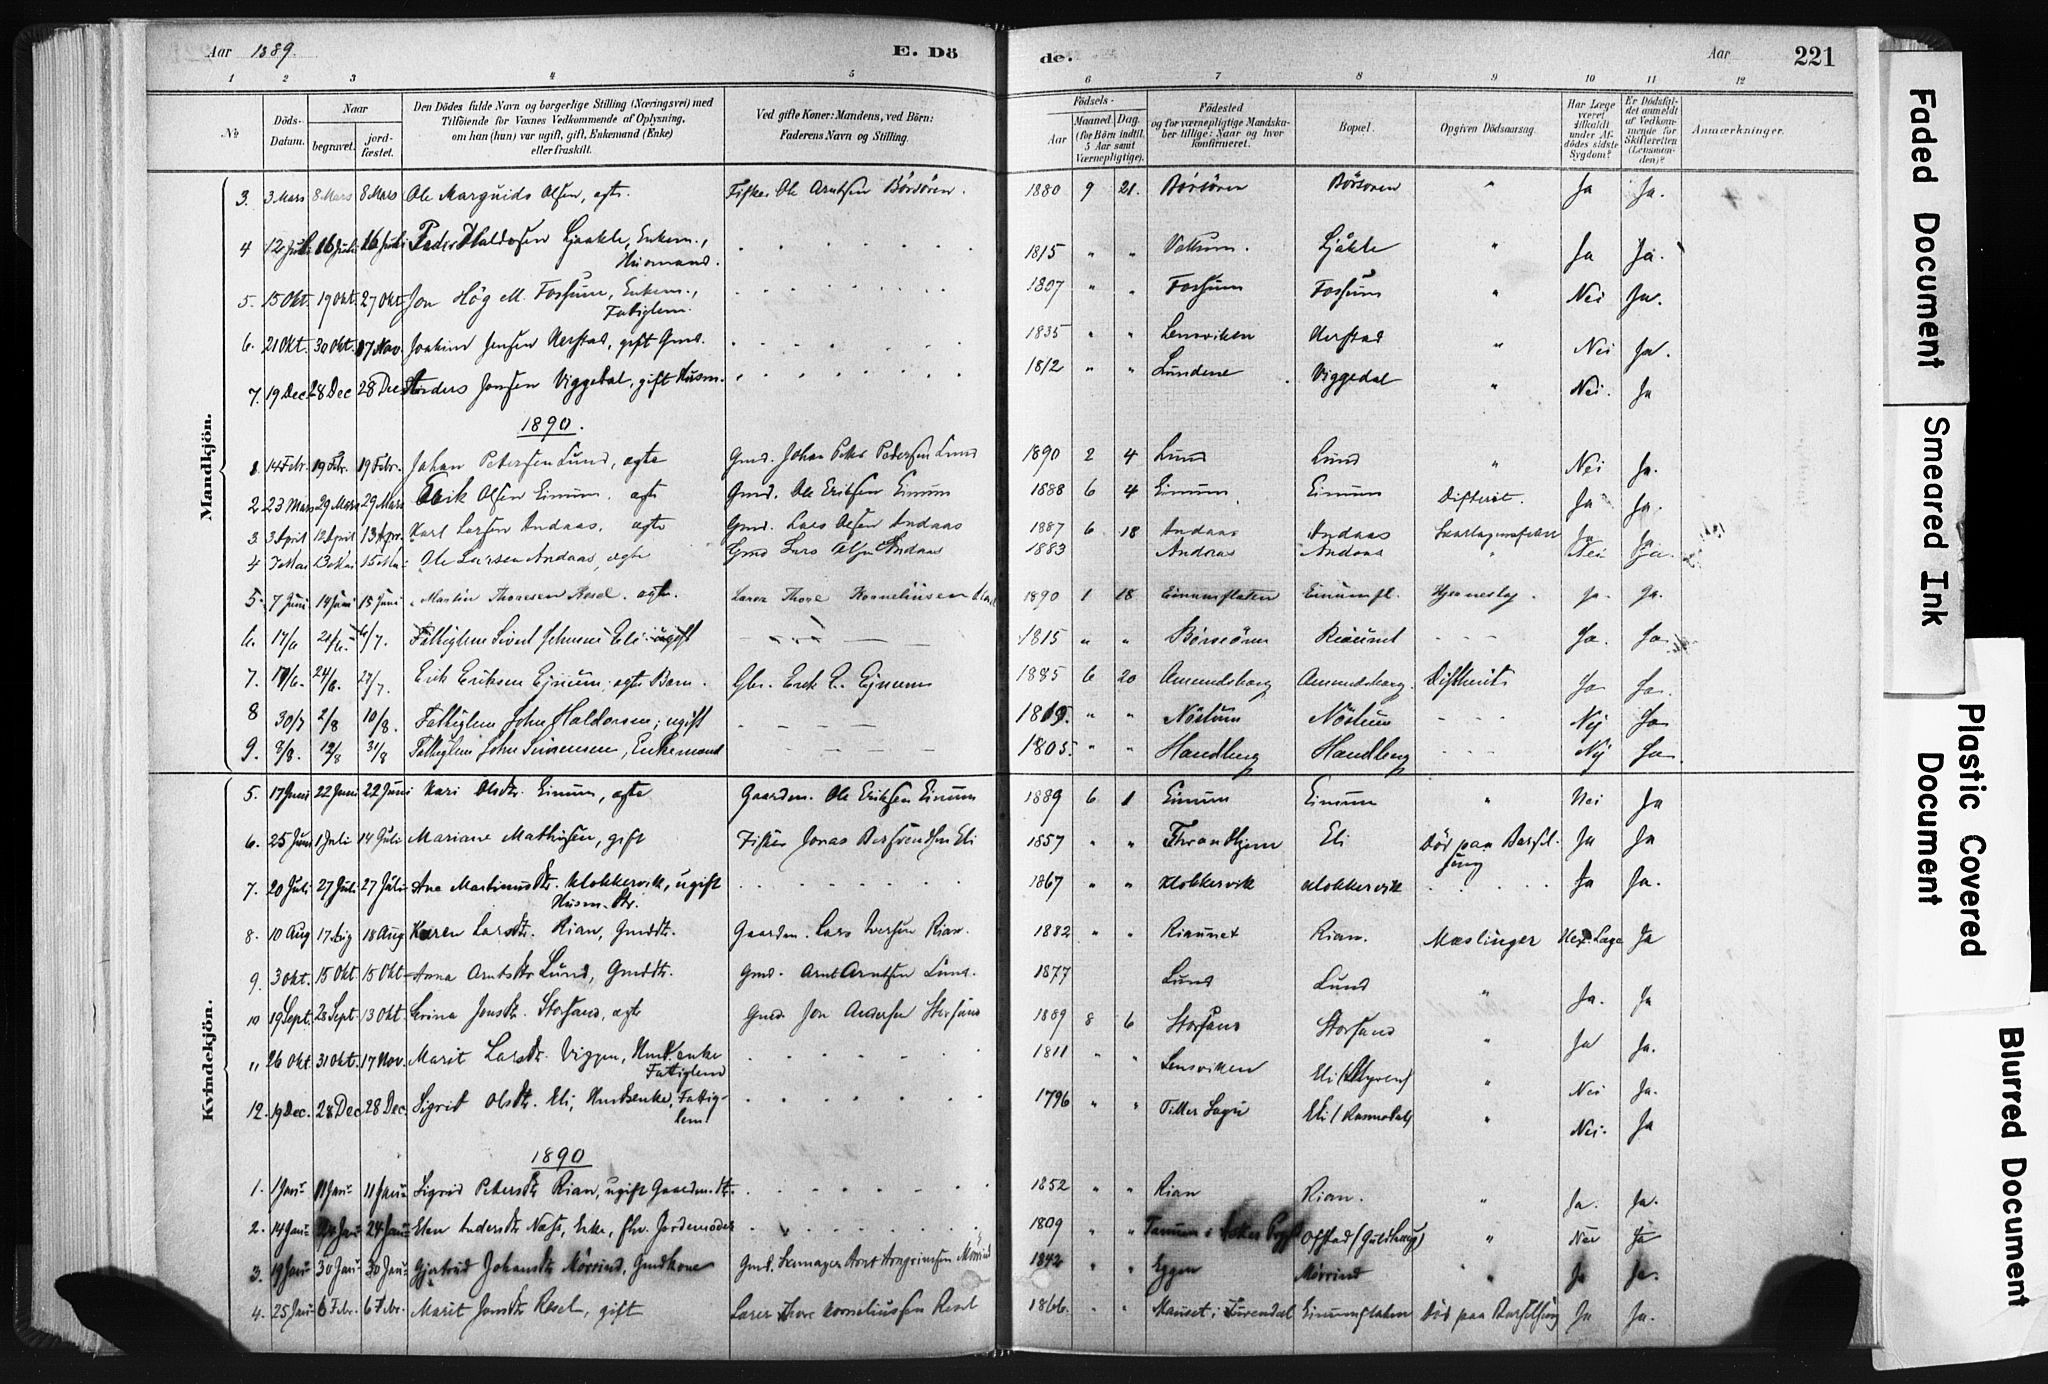 Aar 1889.
E. Dö
de.
Aar
221
1 2 3 4 5 6 7 8 9 10 11 12
No
Döds-Datum.
Naar
begravet.
jordfæstet.
Den Dödes fulde Navn og borgerlige Stilling (Næringsvei) med
Tilföiende for Voxnes Vedkommende af Oplysning,
om han (hun) var ugift, gift, Enkemand (Enke)
eller fraskilt.
Ved gifte Koner: Mandens, ved Börn:
Faderens Navn og Stilling.
Födsels-
Aar
Maaned. Dag.
(for Börn indtil
5 Aar samt
Værnepligtige).
Födested
og for værnepligtige Mandskaber tillige: Naar og hvor
konfirmeret.
Bopæl.
Opgiven Dödsaarsag.
Har Læge
været
tilkaldt
under Afdödes sidste
Sygdom?
Er Dödsfaldet anmeldt
af Vedkommende for
Skifteretten
(Lensmanden)?
Anmærkninger.
Mandkjön.
3. 3 Mars 8 Mars 8 Mars Ole Olsen, ægte. Fisker Ole Arntsen Börsören. 1880 9 21. Börsören Börsören " Ja Ja.
4 12 Juli 16 Juli 16 Juli Peder Haldosen Ljaakle, Enkem., Husmand. 1815 " " Ljåkle " Ja Ja.
5. 15 Okt. 19 Okt. 27 Okt. Jon Hög M. Fossum, Enkem., Fattiglem. 1807 " " Fossum Fossum " Nei Ja.
6. 21 Okt. 30 Okt. 17 Nov. Joakim Jensen Aerstad, gift Gmd. 1835 " " Lensviken Aerstad " Nei Ja.
7. 19 Dec. 28 Dec 28 Dec Anders Jonsen Viggedal, gift Husm. 1812 " " Lundene Viggedal " Nei. Ja
1890.
1. 14 Febr. 19 Febr. 19 Febr. Johan Petersen Lund, ægte Gmd. Johan Peter Pedersen Lund 1890 2 4 Lund Lund " Nei Ja.
2 23 Mars 29 Mars 29 Mars Erik Olsen Einum. ægte Gmd. Ole Eriksen Einum 1888 6 4 Einum Einum Difterit. Ja Ja.
3 3 April 12 April 13 Apr. Karl Larsen Andaas, ægte Gmd. Lars Olsen Andaas 1887 6 18 Andaas Andaas Ja Ja
4 7 Mai 13 Mai 15 Mai Ole Larsen Andaas, ægte Gmd Lars Olsen Andaas 1883 Andaas Andaas " Nei Ja.
5. 7 Juni 14 Juni 15 Juni Martin Thoresen Resel. ægte. Lærer Thore Korneliussen Resel 1890 1 18 Einumflaten Einumfl. Ja. Ja.
6. 17/6 6/7. Fattiglem Sivert Johnsen Eli ugift 1815 " " Börseören Ja. Ja.
7. 17/6. 24/6. 27/7. Erik Eriksen Ejnum, ægte Barn. Gbr. Erik E. Ejnum 1885 6 20 Amundsborg Amundsborg. Diftherit Ja Ja.
8 30/7 2/8 10/8. Fattiglem John Haldorsen, ugift 1815. " " Nöstum Nöstum Nej Ja
9. 8/8. 12/8 31/8 Fattiglem John Simensen, Enkemand 1805. " " Handberg Handberg Nej Ja
Kvindekjön.
5. 17 Juni 22 Juni 22 Juni Kari Olsdtr. Einum, ægte Gaardm. Ole Eriksen Einum 1889 6 1 Einum Einum " Nei Ja
6. 25 Juni 1 Juli 14 Juli Mariane Mathisen, gift Fisker Jonas Eli 1857 " " Throndhjem Eli Död paa Barselseng Ja Ja
7. 20 Juli 27 Juli 27 Juli Ane Martinusdtr. Klokkervik, ugift Husm. dtr. 1867 " " Klokkervik Klokkervik Ja Ja.
8. 10 Aug 17 Aug 18 Aug Karen Larsdtr. Rian, Gmddtr. Gaardm. Lars Iversen Rian. 1882 " " Riaunet Rian. Mæslinger Læge Ja
9. 3 Okt. 15 Okt 15 Okt Anna Arntsdtr Lund, Gmddtr. Gmd. Arnt Arntsen Lund. 1877 Lund Lund " Ja. Ja
10 19 Sept. 28 Sept. 13 Okt Jonsdtr. Storsand, ægte Gmd. Jon Andersen Storsand 1889 8 6 Storsand Storsand " Ja Ja.
11 26 Okt. 31 Okt. 17 Nov. Marit Larsdtr. Viggen, Husm.enke Fattiglem 1811 " " Lensviken Eli (Myren) " Nei Ja.
12. 19 Dec. 28 Dec 28 Dec. Sigrid Olsdtr. Eli, Husm.enke, Fattiglem 1796 " " Tiller Sogn Eli " Nei. Ja
1890
1. 1 Jan. 11 Jan. 11 Jan. Sigrid Petersdtr Rian, ugift Gaardm.dtr. 1852 " " Rian Rian. " Ja. Ja.
2. 14 Jan. 24 Jan. 24 Jan. Elen Andersdtr. Næss, Enke, fhv. Jordemoder 1809 " " Tanum i Asker Prgj. Ofstad (Guldhaug) " Nei Ja
3. 19 Jan. 30 Jan. 30 Jan. Gjertrud Johansdtr Mörrind, Gmdkone Gmd. Arnt Arngrimsen Mörrind 1842 " " Eggen Mörrind " Ja Ja.
4. 25 Jan. 6 Febr. 6 Febr. Marit Jonsdtr. Resel, gift Lærer Thore Korneliussen Resel 1866. " " Mauset i Surendal Einumflaten Död paa Barselseng Ja Ja.
Faded Document
Smeared Ink
Plastic Covered Document
Blurred Document